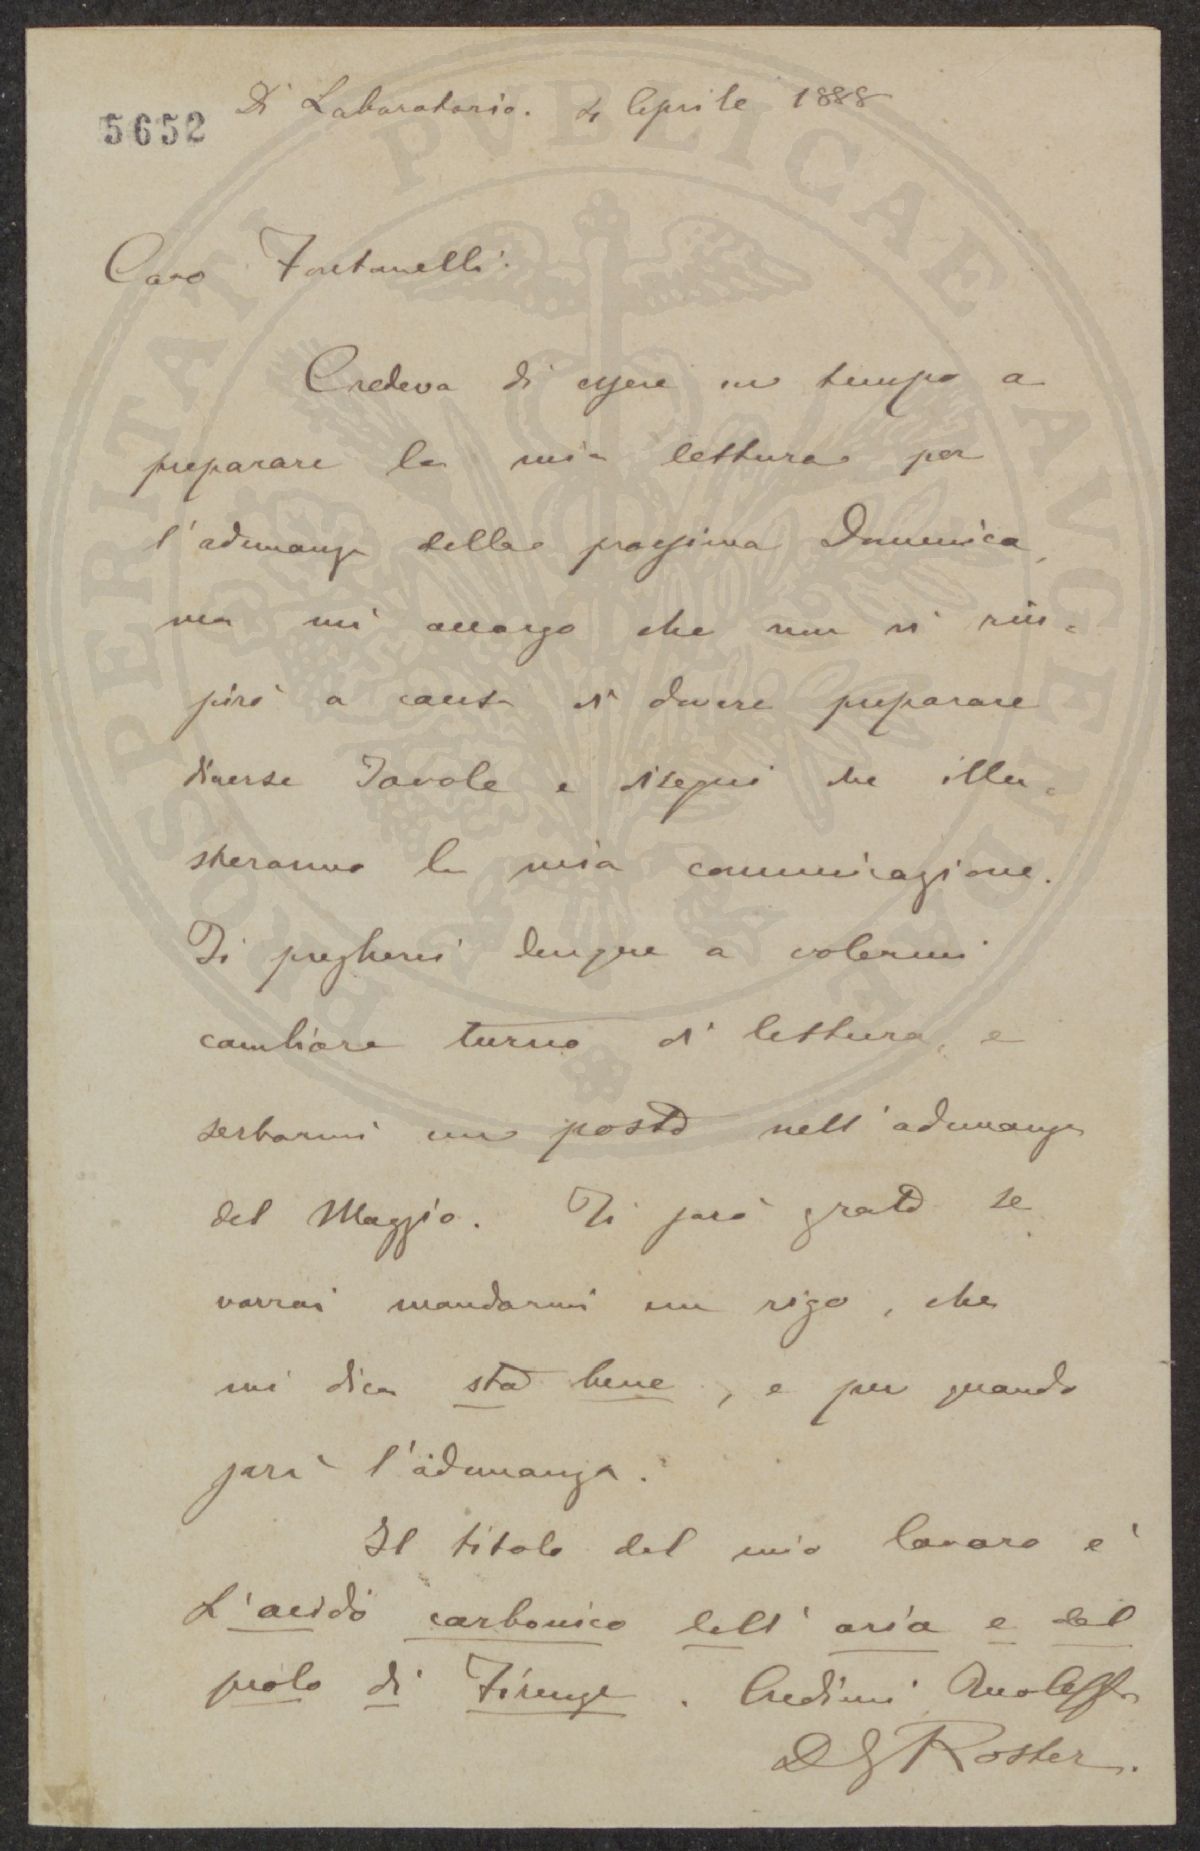 5652
Di Laboratorio. 4 Aprile 1888
Caro Fontanelli.
Credeva di essere in tempo a
preparare la mia lettura per
l'adunanza della prossima Domenica,
ma mi accorgo che non vi riu=
scirò a causa di dovere preparare
diverse Tavole e disegni che illu=
streranno la mia comunicazione.
Ti pregherei dunque a volermi
cambiare turno di lettura, e
serbarmi un posto nell'adunanza
del Maggio. Ti sarò grato se
vorrai mandarmi un rigo, che
mi dica sta bene, e per quando
sarà l'adunanza.
Il titolo del mio lavoro è
L'acido carbonico dell'aria e del
suolo di Firenze. Credimi
D G Roster.
PROSPERITATI PVBLICAE AVGENDAE